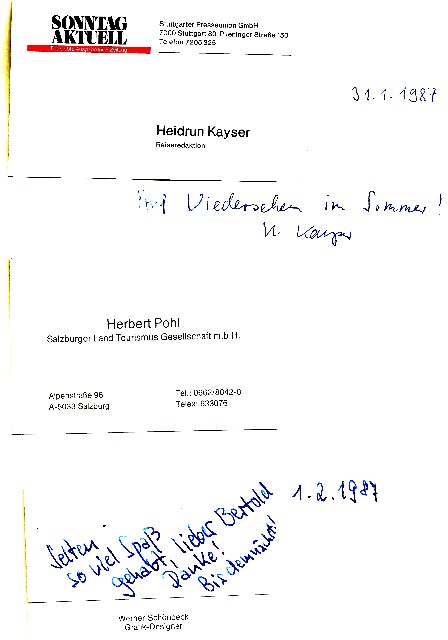 SONNTAG
AKTUELL
Stuttgarter Presseunion GmbH
7000 Stuttgart 80, Plieninger Straße 150
Telefon 7205 326
31.1.1987
Heidrun Kayser
Reiseredaktion
Auf Wiedersehen im Sommer!
H. Kayser
Herbert Pohl
Salzburger Land Tourismus Gesellschaft m.b.H.
Alpenstraße 96
A-5033 Salzburg
Tel.: 0662/8042-0
Telex: 633076
1.2.1987
Selten
so viel Spaß
gehabt, lieber Bertold
Danke!
Bis demnächst!
Werner Schönbeck
Grafik-Designer